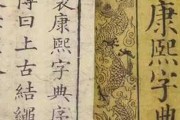 康熙字典
製康熙字典序
傳曰上古結繩